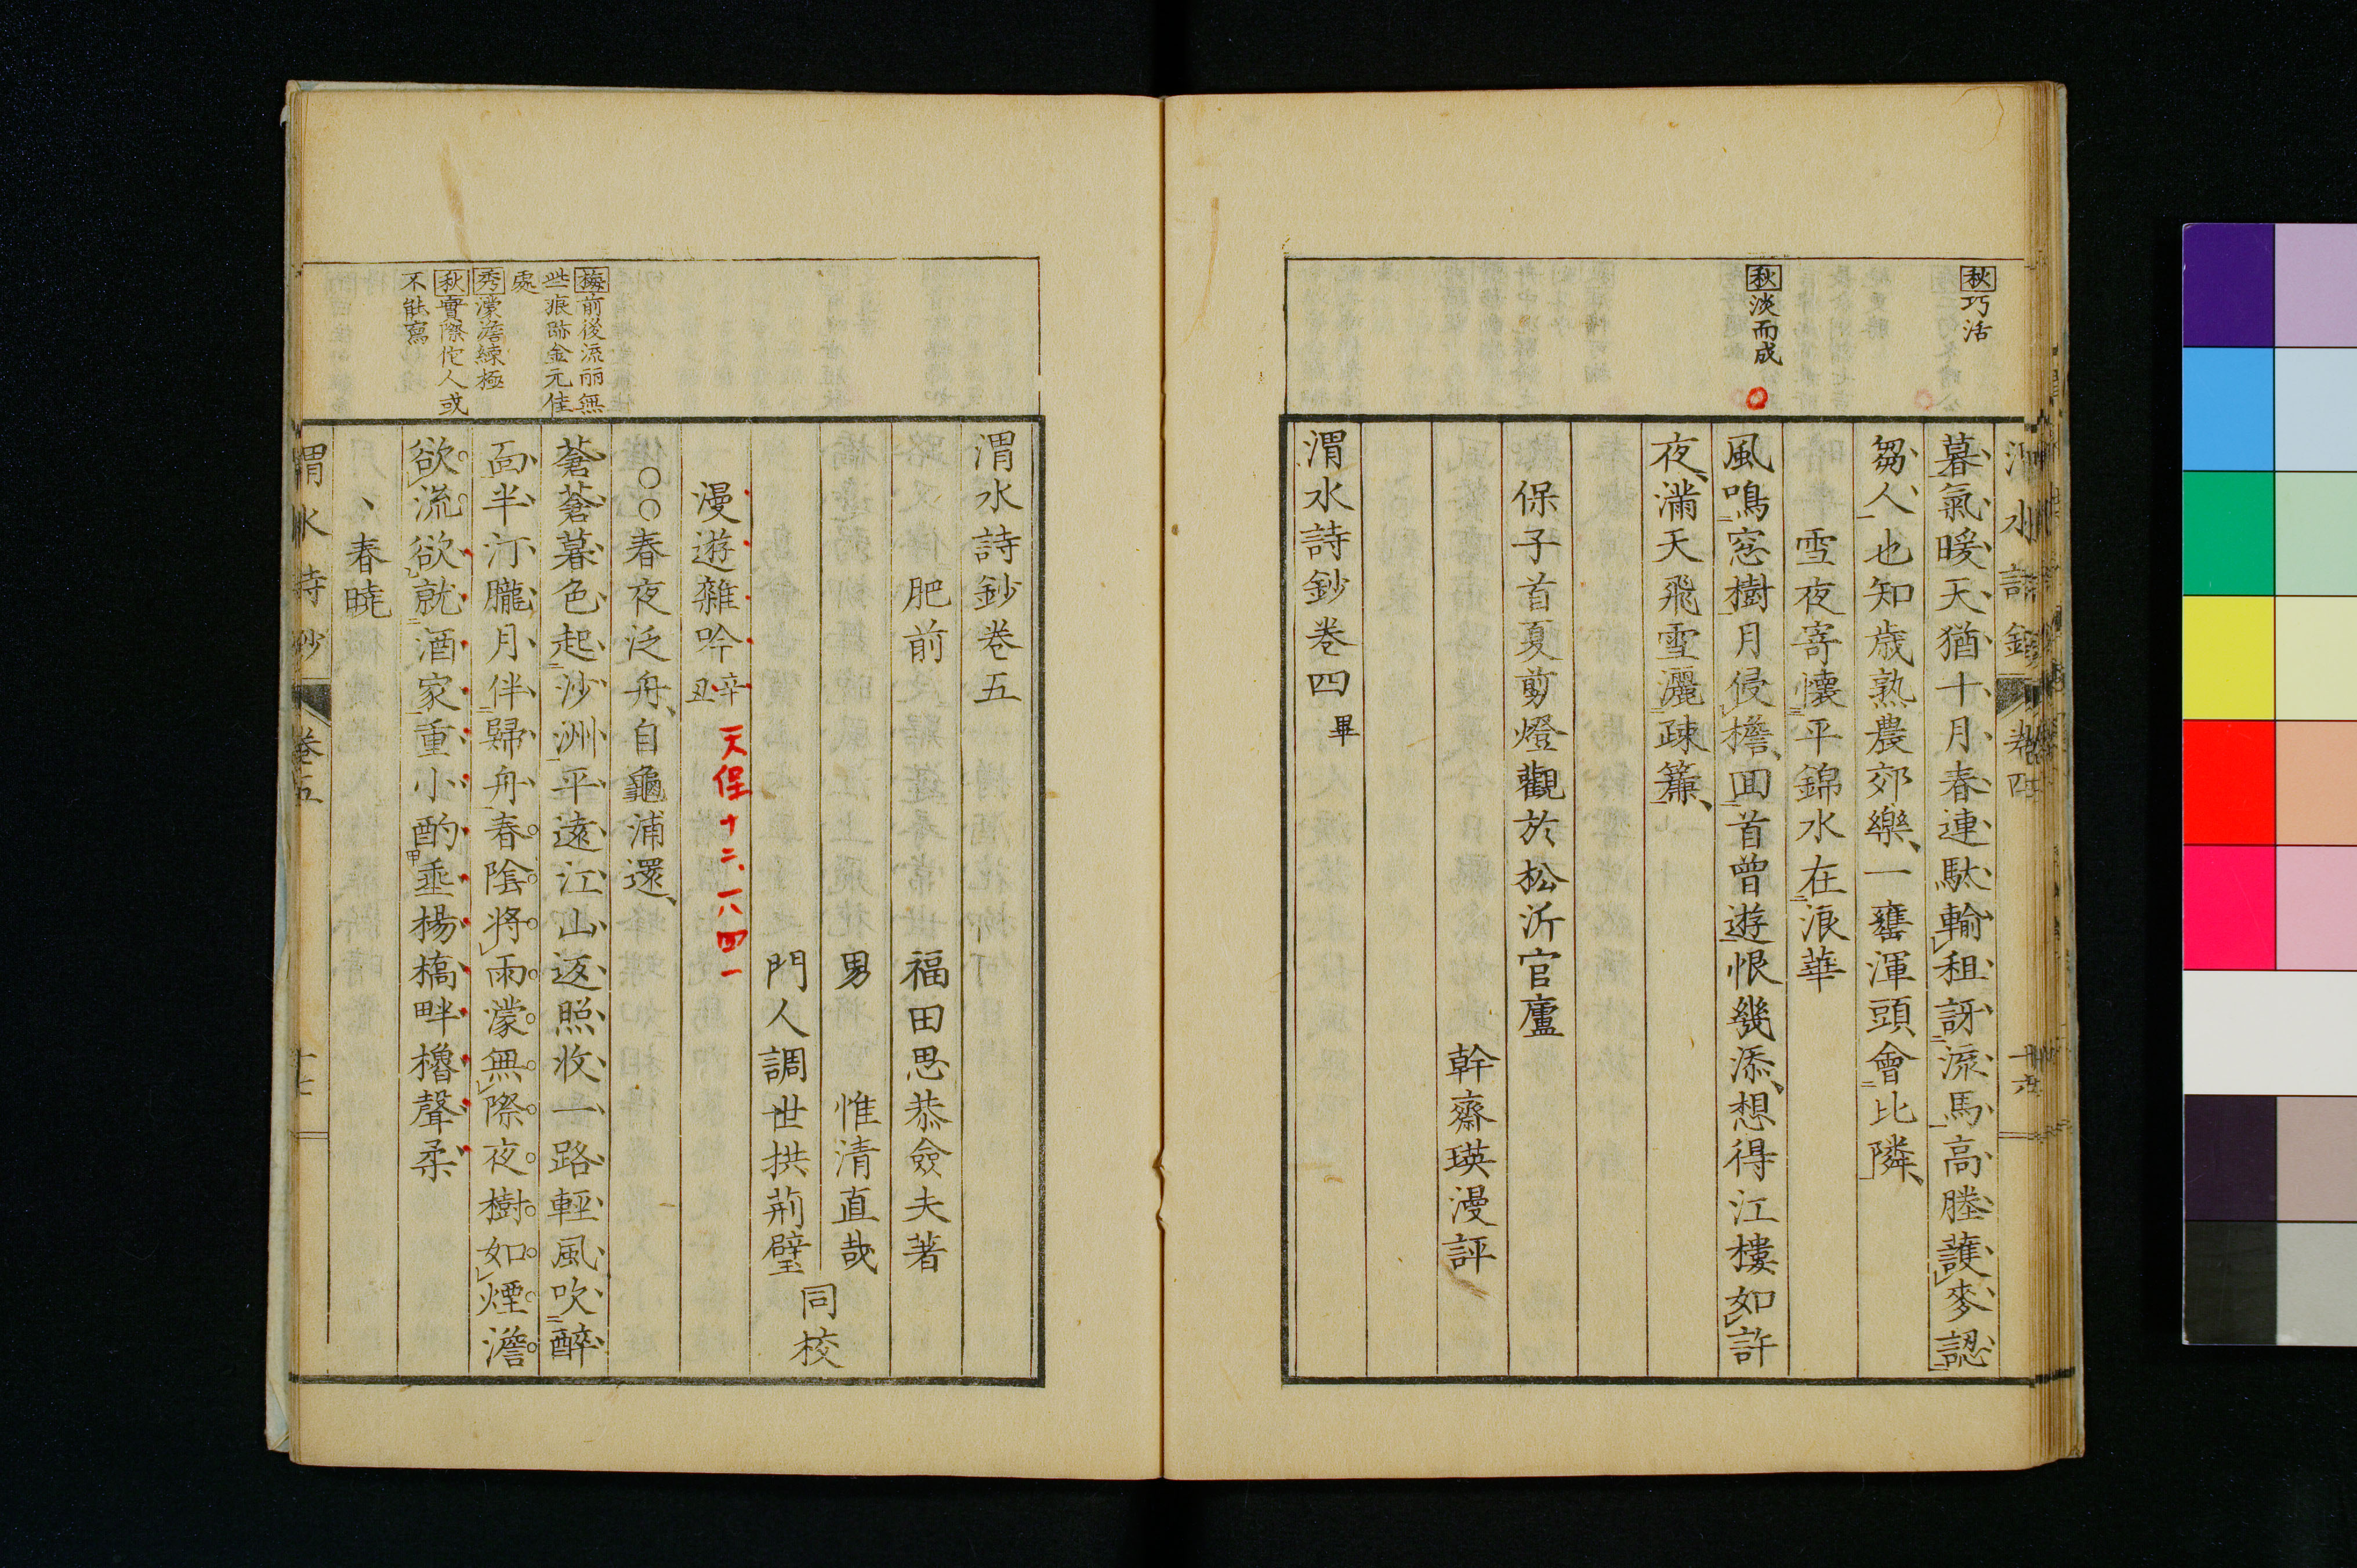 秋巧活
秋淡而成
暮氣暖天猶十月春連馱輸租訝流馬高塍護麥認
芻人也知歳熟農郊樂一罋渾頭會比隣
雪夜寄懷平錦水在浪華
風鳴窓樹月侵檐囬首曾遊恨幾添想得江樓如許
夜滿天飛雪灑疎簾
保子首夏剪燈觀於松沂官廬
幹齋瑛漫評
渭水詩鈔卷四畢
梅前後流丽無
些痕跡金元佳
處
秀濛澹練極
秋實際佗人或
不能寫
渭水詩鈔卷五
肥前 福田思恭儉夫著
男 惟清直哉
門人調世拱荊璧
同校
漫遊雜吟辛丑
天保十二、一八四一
○○春夜泛舟自龜浦還
蒼蒼暮色起沙洲平遠江山返照收一路輕風吹醉
面半汀朧月伴歸舟春陰將雨濛無際夜樹如煙澹
欲流欲就酒家重小酌垂楊橋畔櫓聲柔
、春曉
渭水詩鈔 卷五